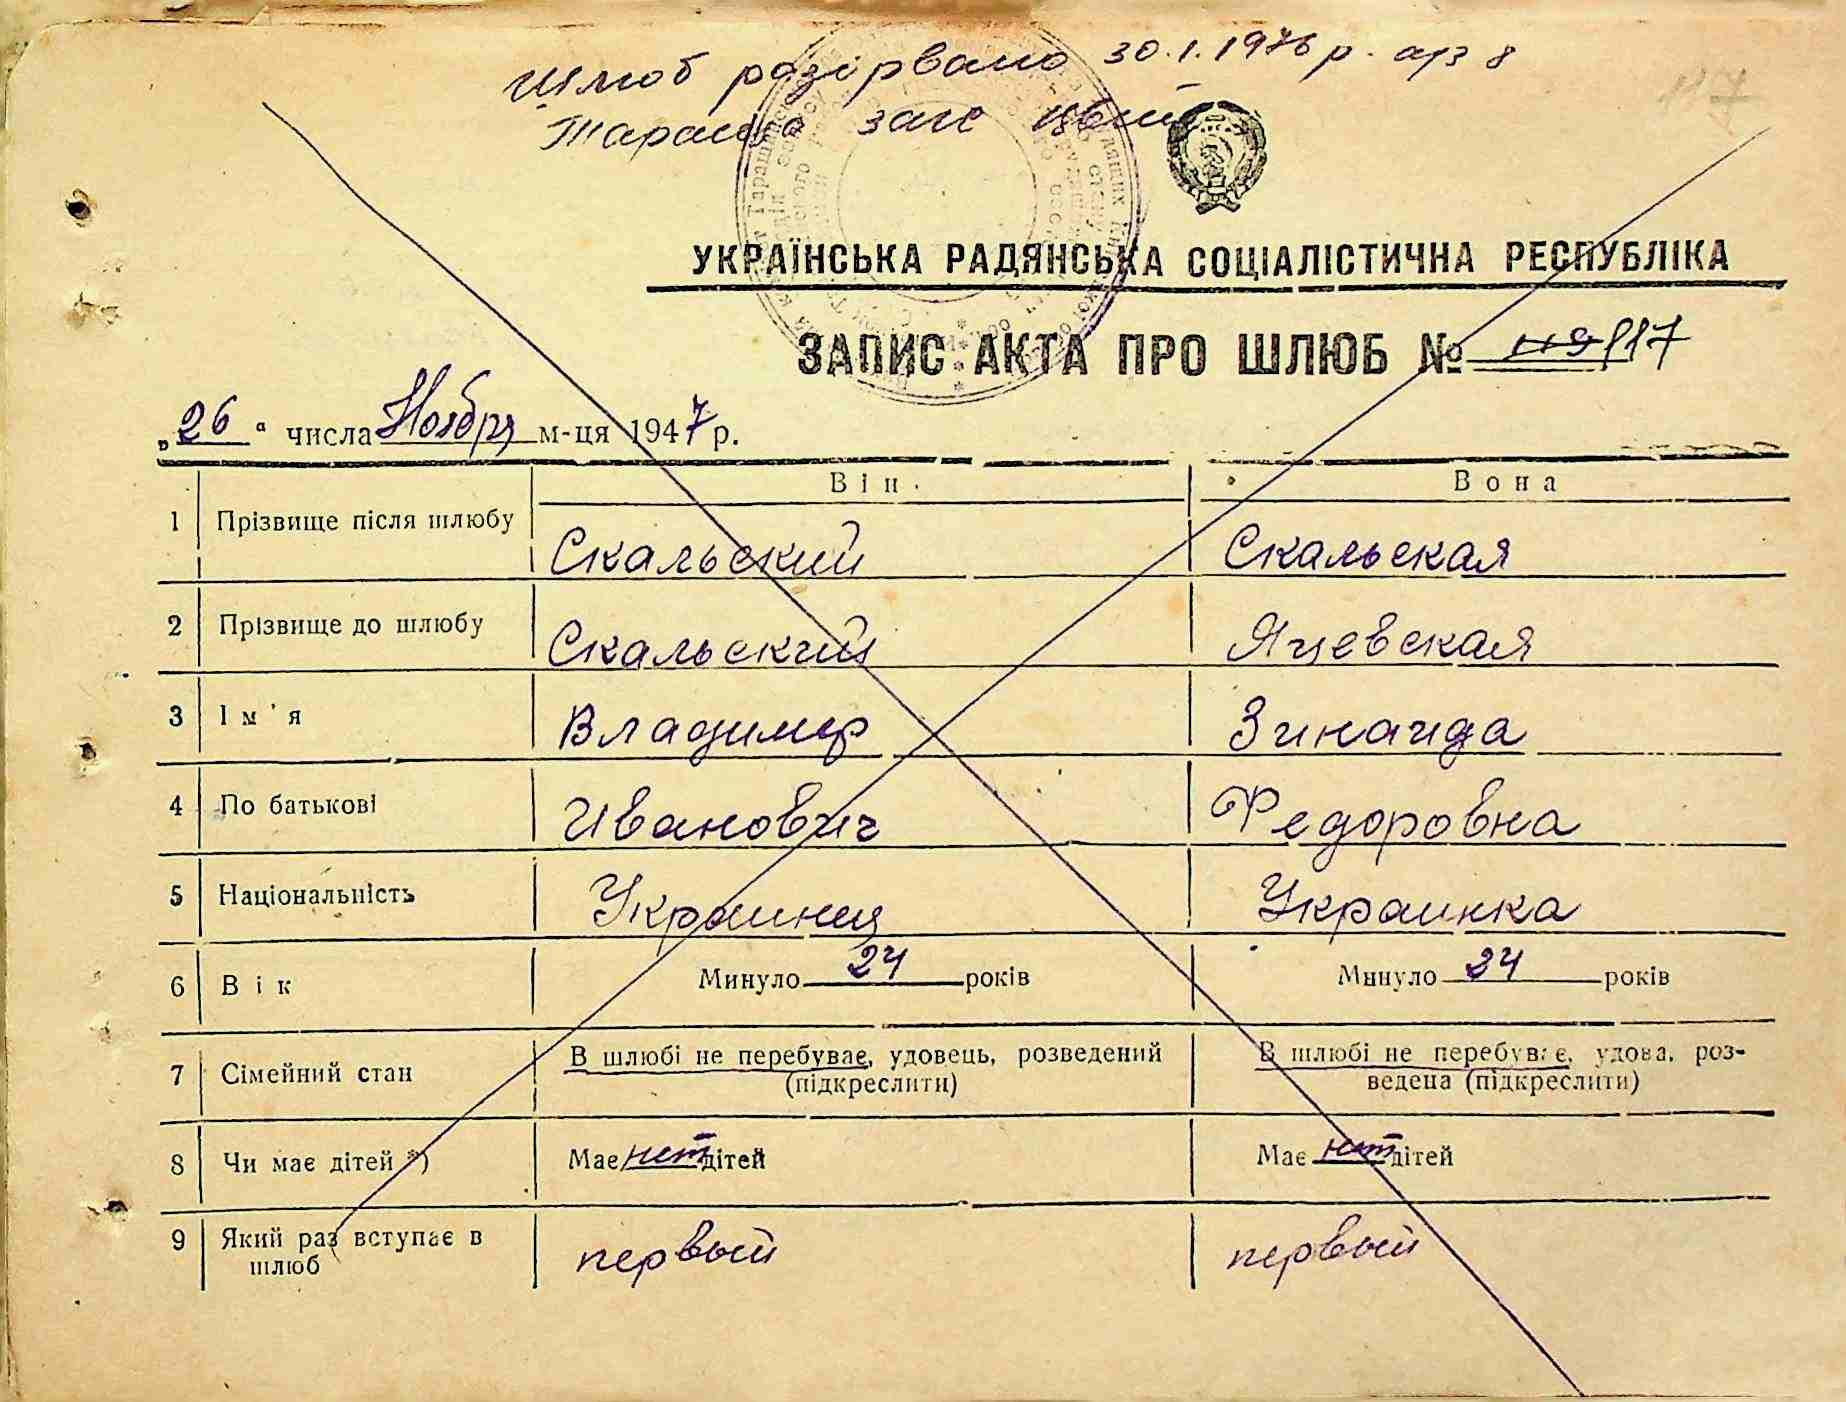 Шлюб розірвано 30.1.1976 р. а/з 8
загс
117
УКРАЇНСЬКА РАДЯНСЬКА СОЦІАЛІСТИЧНА РЕСПУБЛІКА
ЗАПИС АКТА ПРО ШЛЮБ № 119 117
„26" числа Ноября м-ця 1947 р.
Він Вона
1 Прізвище після шлюбу Скальский Скальская
2 Прізвище до шлюбу Скальский Яцевская
3 Ім'я Владимер Зинаида
4 По батькові Иванович Федоровна
5 Національність Украинец Украинка
6 Вік Минуло 24 років Минуло 24 років
7 Сімейний стан В шлюбі не перебуває, удовець, розведений (підкреслити) В шлюбі не перебуває, удова, роз-
ведена (підкреслити)
8 Чи має дітей *) Має нет дітей Має нет дітей
9 Який раз вступає в шлюб первый первый